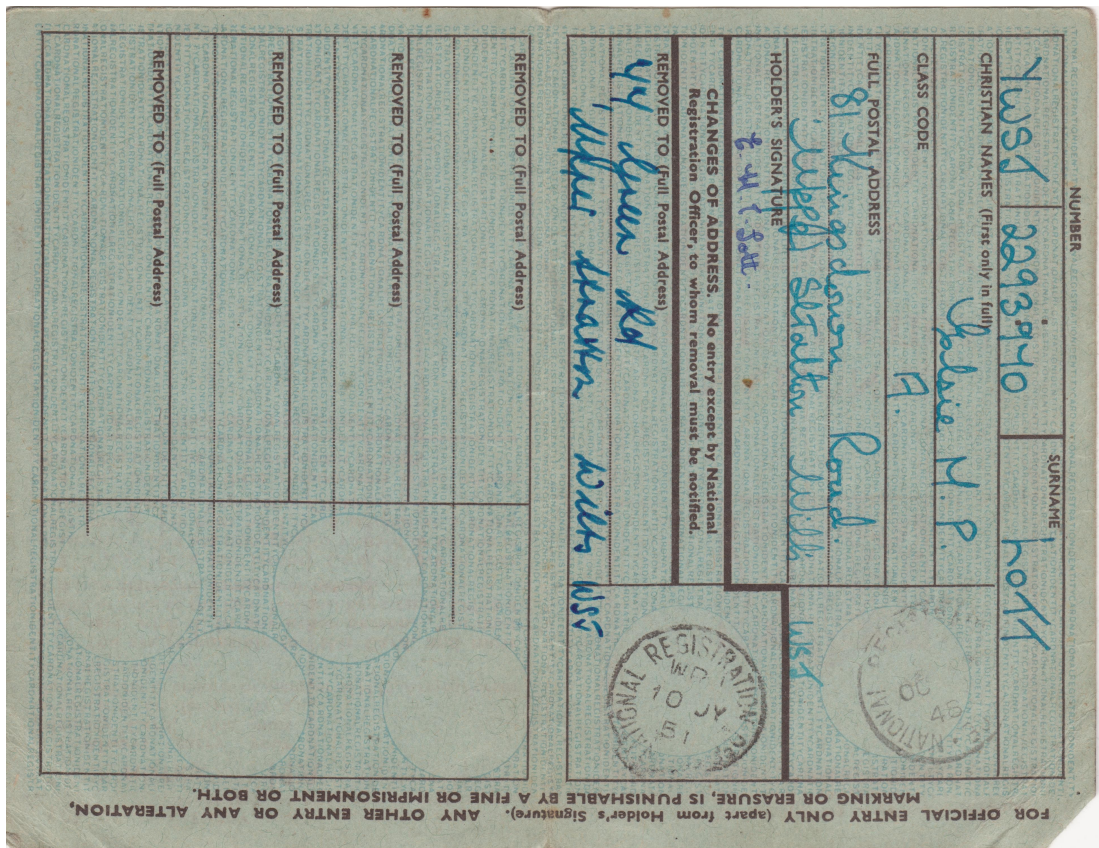 NUMBER
SURNAME
YWSJ 2293940
LOTT
CHRISTIAN NAMES (First only in full)
Elsie M. P.
CLASS CODE
A.
FULL POSTAL ADDRESS
81 Kingsdown Road.
Upper Stratton Wilts
WSJ
HOLDER'S SIGNATURE
E. M. P. Lott.
NATIONAL REGISTRATION
OC
45
CHANGES OF ADDRESS. No entry except by National
Registration Officer, to whom removal must be notified.
REMOVED TO (Full Postal Address)
44 Green Rd
Upper Stratton Wilts WSJ
NATIONAL REGISTRATION
10 JY
51
REMOVED TO (Full Postal Address)
REMOVED TO (Full Postal Address)
REMOVED TO (Full Postal Address)
REMOVED TO (Full Postal Address)
FOR OFFICIAL ENTRY ONLY (apart from Holder's Signature). ANY OTHER ENTRY OR ANY ALTERATION,
MARKING OR ERASURE, IS PUNISHABLE BY A FINE OR IMPRISONMENT OR BOTH.